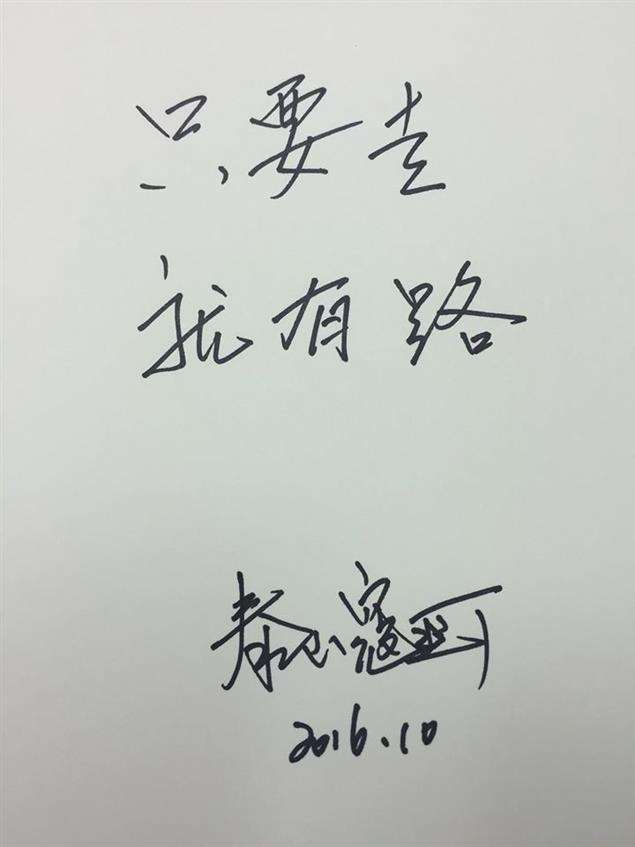 只要走
就有路
2016.10